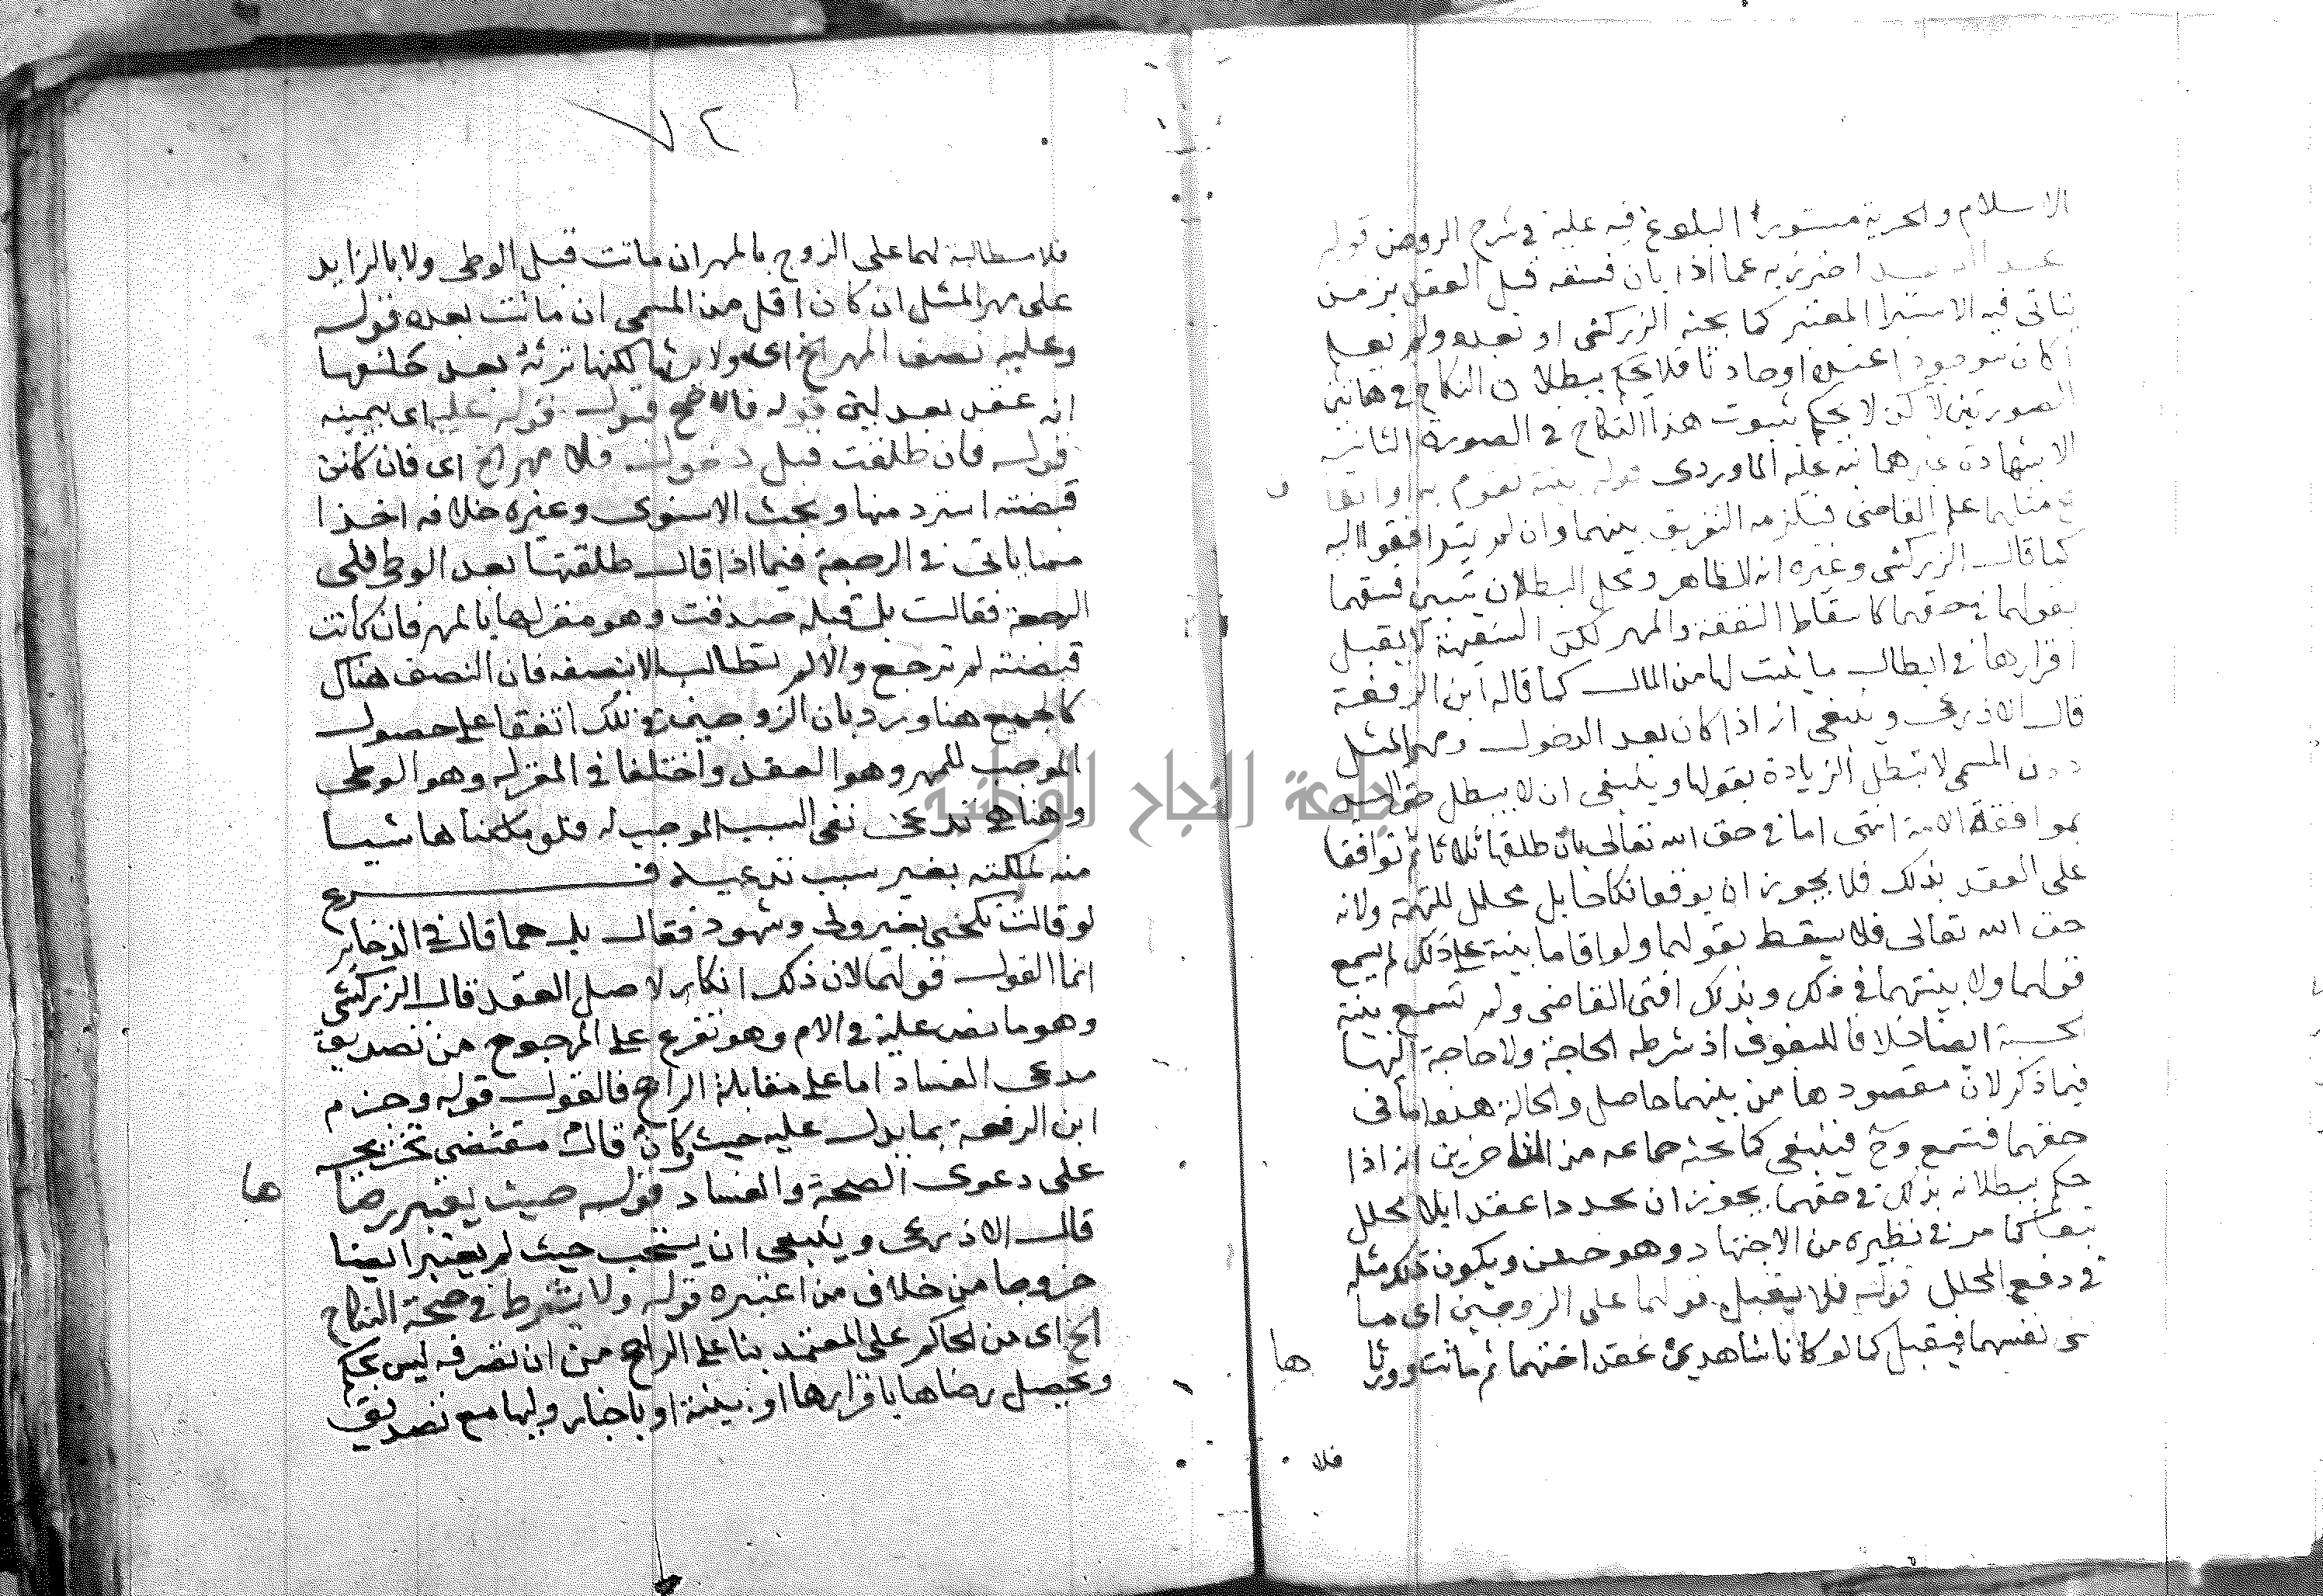 الاسلام والحرية مستورا البلوغ فيه عليه في شرح الروض قوله
عند العقد احترز به عما اذا بان فسقه قبل العقد بزمن
يتاتى فيه الاستبرا المعتبر كما بحثه الزركشى او بعده ولم يعلم
اكان موجودا عنده او حادثا فلا يحكم ببطلان النكاح في هاتين
الصورتين لاكن لا يحكم بثبوت هذا النكاح في الصورة الثانية
الا بشهادة غيرهما نبه عليه الماوردى قوله ببينة تقوم به او
علم القاضى فيلزمه التفريق بينهما وان لم يترافقوا اليه
كما قال الزركشى وغيره انه الظاهر ومحل البطلان بتبين فسقهما
بقولهما في حقهما كاسقاط النفقة والمهر لكن السفيهة لا يقبل
اقرارها في ابطال ما يثبت لها من المال كما قاله ابن الرفعة
قال الاذرعى وينبغى انه اذا كان بعد الدخول ومهر المثل
دون المسمى لا تبطل الزيادة بقولها وينبغى ان لا يبطل حق السيد
بموافقة الامة انتهى اما في حق الله تعالى بان طلقها ثلاثا ثم توافقا
على العقد بذلك فلا يجوز ان يوقعا نكاحا بل محلل للتهمة ولانه
حق الله تعالى فلا يسقط بقولهما ولو اقاما بينة على ذلك لم يسمع
قولهما ولا بينتهما في ذلك وبذلك افتى القاضى ولم تسمع بينة
الحسبة ايضا خلافا للبغوى اذ شرطه الحاجة ولا حاجة اليها
فيما ذكر لان مقصودها من بينهما حاصل والحالة هذه اما في
حقهما فتسمع وح فينبغى كما بحثه جماعه من المتاخرين انه اذا
حكم ببطلانه بذلك في حقهما يجوز ان يجددا عقدا بلا محلل
تبعا كما مر في نظيره من الاجتهاد وهو حسن ويكون ذلك مثله
في دفع المحلل قوله فلا يقبل قولهما على الزوجين اى ما
نفسهما فيقبل كما لو كانا شاهدى عقد اختهما ثم ماتت وورثاها
فلا
٧٢
فلا مطالبة لهما على الزوج بالمهر ان ماتت قبل الوطى ولا بالزايد
على مهر المثل ان كان اقل من المسمى ان ماتت بعده قوله
وعليه نصف المهر الخ اى ولا يرثها لكنها ترثه بعد حلفها
انه عقد بعدلين قوله فالاصح قوله قوله عليه اى بيمينه
قوله فان طلقت قبل دخول فلا مهر الخ اى فان كانت
قبضته استرد منها وبحث الاسنوى وغيره خلافه اخذا
مما ياتى في الرجعة فيما اذا قال طلقتها بعد الوطى فلى
الرجعة فقالت بل قبله صدقت وهو مقر لها بالمهر فان كانت
قبضته لم ترجع والا لم تطالب الا بنصفه فان النصف هناك
كالجميع هنا ورد بان الزوجين في تلك اتفقا على حصول
الموجب للمهر وهو العقد واختلفا في المقرر له وهو الوطى
وهنا هى تدعى نفى السبب الموجب له فلو ملكناها شيا
منه لملكته بغير سبب تدعيه فرع
لو قالت نكحتنى بغير ولى وشهود فقال بل بهما قال في الذخاير
انما القول قولها لان ذلك انكار لاصل العقد قال الزركشى
وهو ما نص عليه في الام وهو تفرع على المرجوح من تصديق
مدعى الفساد اما على مقابله الراجح فالقول قوله وجزم
ابن الرفعة بما يدل عليه حيث كان قال مقتضى تخريجه
على دعوى الصحة والفساد قوله حيث يعتبر رضاها
قال الاذرعى وينبغى ان يستحب حيث لم يعتبر ايضا
خروجا من خلاف من اعتبره قوله ولا يشترط في صحة النكاح
الخ اى من الحاكم على المعتمد بنا على الراجح من ان تصرفه ليس بحكم
ويحصل رضاها باقرارها او ببينة او باخبار وليها مع تصديق
جامعة النجاح الوطنية